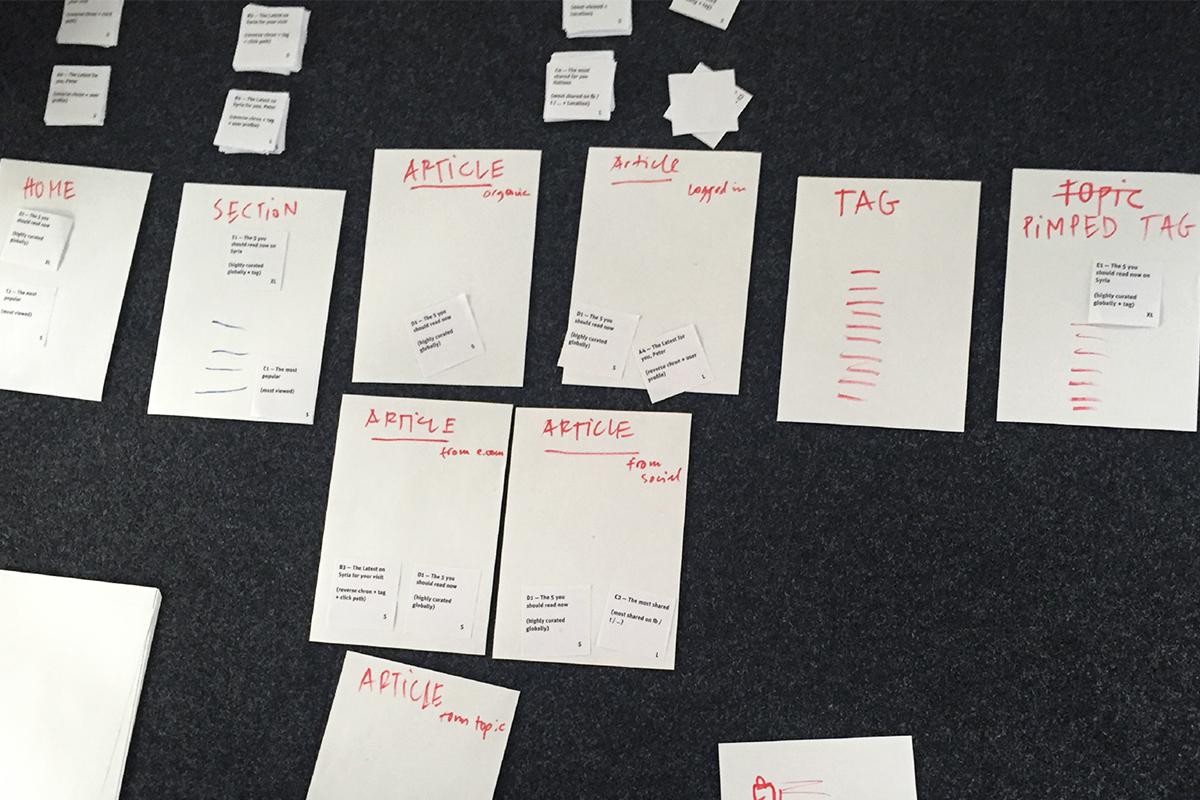 (reverse chron + click
path)
S
B2 — The Latest on
Syria for your visit
(reverse chron + tag
+ click path)
S
(most viewed +
Location)
S
+ tag)
S
A4 — The Latest for
you, Peter
(reverse chron + user
profile)
S
Syria for you, Peter
(reverse chron + tag
+ user profile)
S
shared for you
(most shared on fb /
t / ... + Location)
L
HOME
should read now
(highly curated
globally)
XL
The most
popular
(most viewed)
S
SECTION
E1 — The 5 you
should read now on
Syria
(highly curated
globally + tag)
XL
C1 — The most
popular
(most viewed)
S
ARTICLE
organic
D1 — The 5 you
should read now
(highly curated
globally)
S
Article
Logged in
D1 — The 5 you
should read now
(highly curated
globally)
S
A4 — The Latest for
you, Peter
(reverse chron + user
profile)
L
TAG
TOPIC
PIMPED TAG
E1 — The 5 you
should read now on
Syria
(highly curated
globally + tag)
XL
ARTICLE
from e.com
B3 — The Latest on
Syria for your visit
(reverse chron + tag
+ click path)
S
D1 — The 5 you
should read now
(highly curated
globally)
S
ARTICLE
from
social
D1 — The 5 you
should read now
(highly curated
globally)
S
C2 — The most shared
(most shared on fb /
t / ...)
L
ARTICLE
from topic